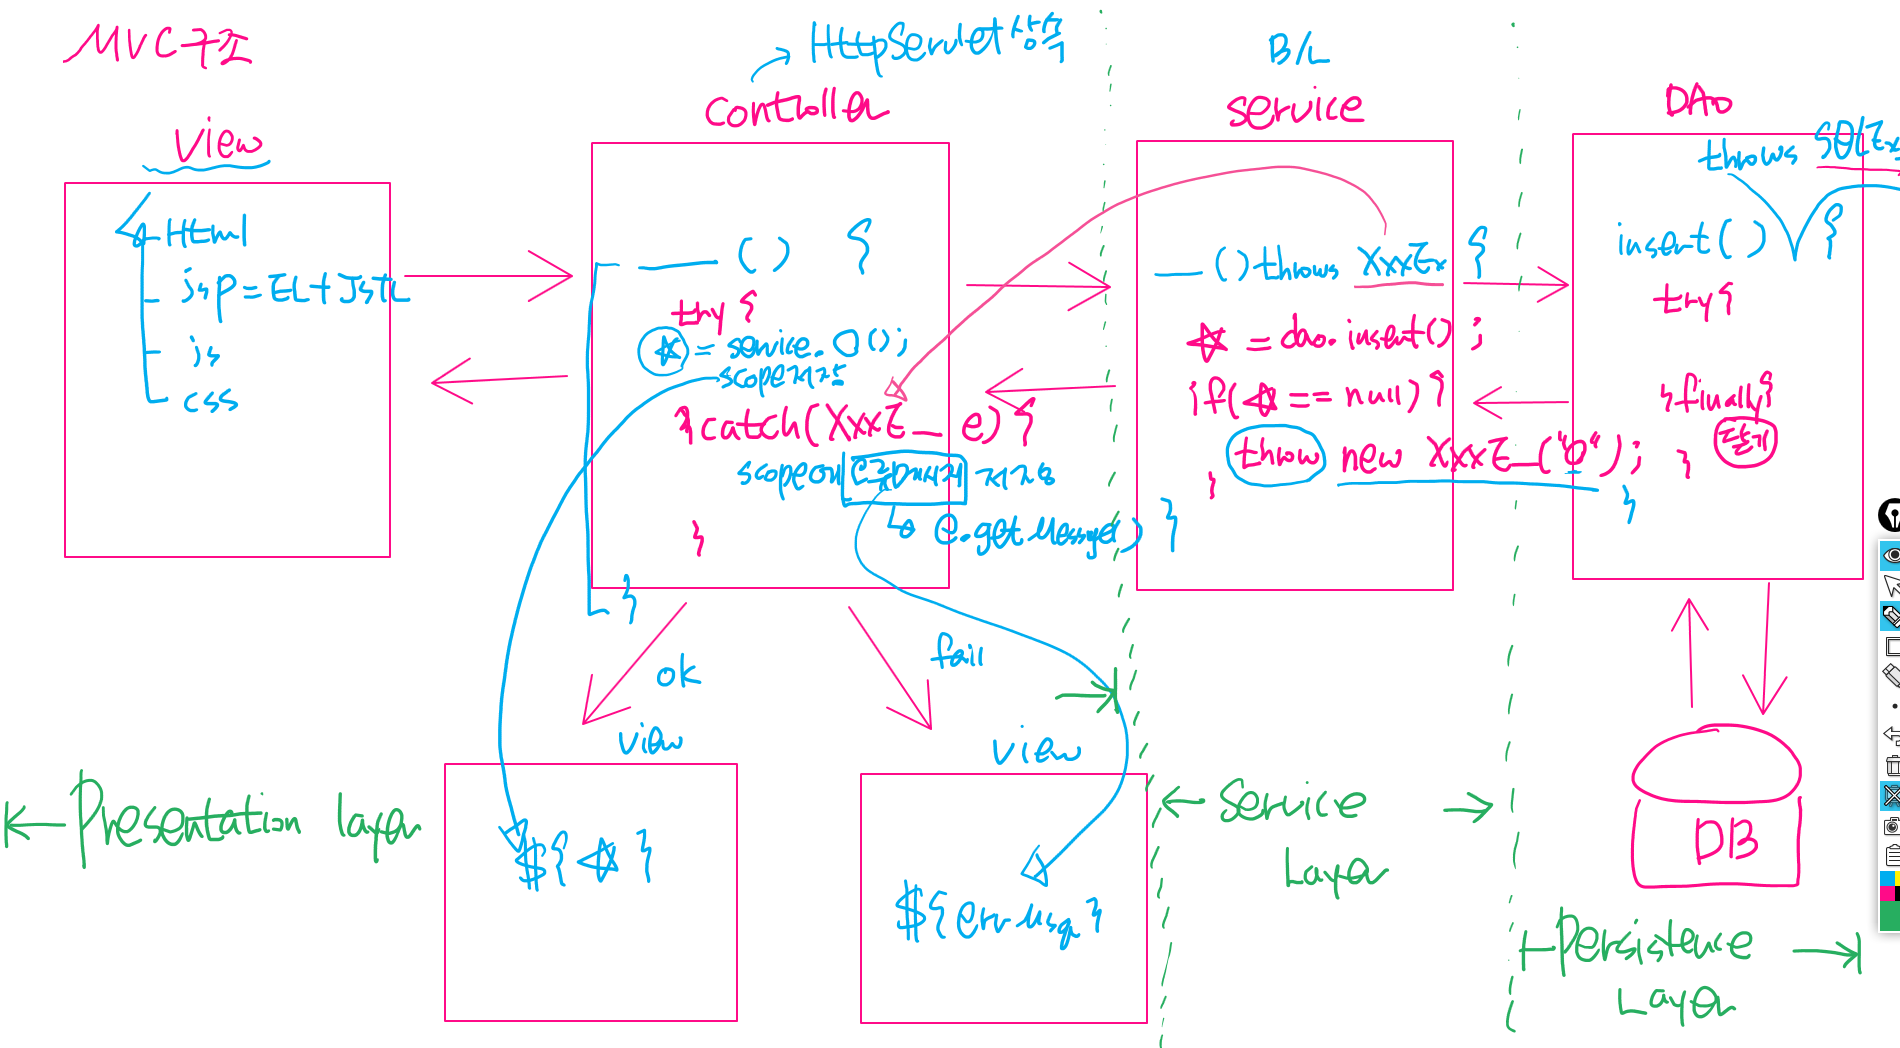 MVC구조
View
Html
jsp = EL + JSTL
js
css
HttpServlet상속
controller
( ) {
try {
☆ = service.O();
scope저장
} catch(XxxE_ e) {
scope에 메시지 저장
e.getMessage()
}
}
}
B/L
service
( ) throws XxxEx {
☆ = dao.insert();
if(☆ == null) {
throw new XxxE_("0");
}
}
DAO
throws SQLEx
insert( ) {
try{
}finally{
닫기
}
ok
view
${☆}
fail
view
${errMsg}
DB
Presentation layer
Service
Layer
Persistence
Layer